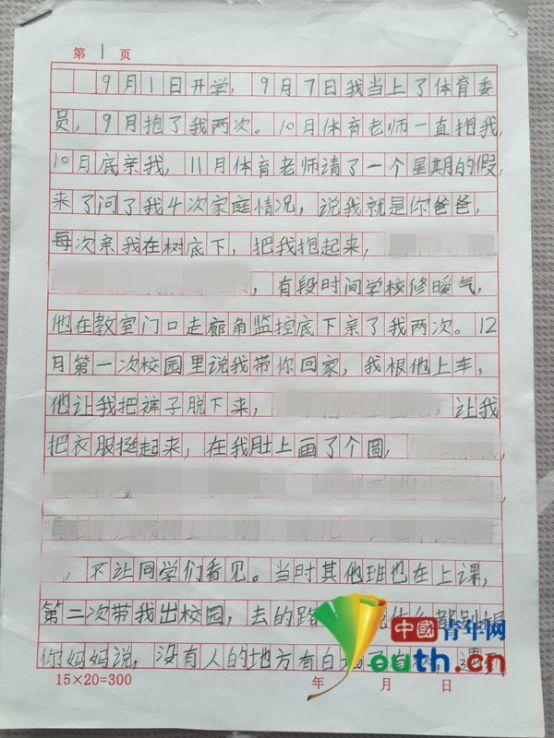 第 1 页
9月1日开学，9月7日我当上了体育委
员，9月抱了我两次。10月体育老师一直抱我，
10月底亲我，11月体育老师请了一个星期的假，
来了问了我4次家庭情况，说我就是你爸爸，
每次亲我在树底下，把我抱起来，
，有段时间学校修暖气，
他在教室门口走廊角监控底下亲了我两次。12
月第一次校园里说我带你回家，我根他上车，
他让我把裤子脱下来，，让我
把衣服挺起来，在我肚上画了个圆，
，不让同学们看见。当时其他班也在上课，
第二次带我出校园，去的路
你妈妈说，没有人的地方有白
15×20=300
年 月 日
中國青年网
Youth.cn